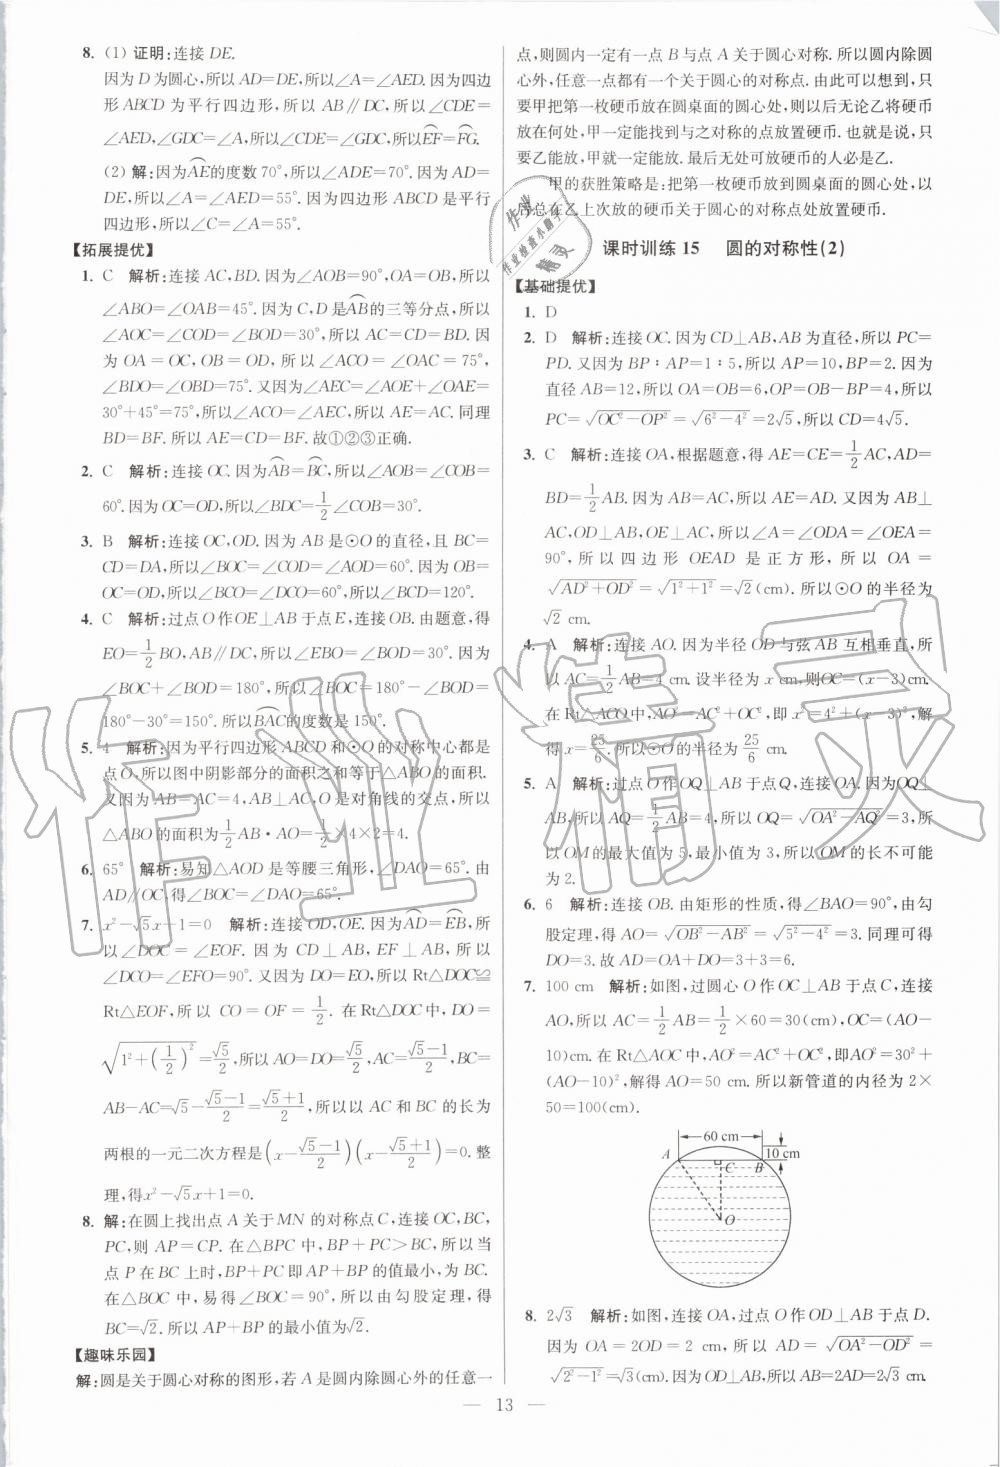 8. (1) 证明:连接 DE.
因为 D 为圆心,所以 AD=DE,所以∠A=∠AED. 因为四边
形 ABCD 为平行四边形,所以 AB∥DC,所以∠CDE=
∠AED,∠GDC=∠A,所以∠CDE=∠GDC,所以EF⌒=FG⌒.
(2) 解:因为AE⌒的度数 70°,所以∠ADE=70°. 因为 AD=
DE,所以∠A=∠AED=55°. 因为四边形 ABCD 是平行
四边形,所以∠C=∠A=55°.
【拓展提优】
1. C 解析:连接 AC,BD. 因为∠AOB=90°,OA=OB,所以
∠ABO=∠OAB=45°. 因为 C,D 是AB⌒的三等分点,所以
∠AOC=∠COD=∠BOD=30°,所以 AC=CD=BD. 因
为 OA=OC,OB=OD,所以∠ACO=∠OAC=75°,
∠BDO=∠OBD=75°. 又因为∠AEC=∠AOE+∠OAE=
30°+45°=75°,所以∠ACO=∠AEC,所以 AE=AC. 同理
BD=BF. 所以 AE=CD=BF. 故①②③正确.
2. C 解析:连接 OC. 因为AB⌒=BC⌒,所以∠AOB=∠COB=
60°. 因为 OC=OD,所以∠BDC=1/2∠COB=30°.
3. B 解析:连接 OC,OD. 因为 AB 是⊙O 的直径,且 BC=
CD=DA,所以∠BOC=∠COD=∠AOD=60°. 因为 OB=
OC=OD,所以∠BCO=∠DCO=60°,所以∠BCD=120°.
4. C 解析:过点 O 作 OE⊥AB 于点 E,连接 OB. 由题意,得
EO=1/2BO,AB∥DC,所以∠EBO=∠BOD=30°. 因为
∠BOC+∠BOD=180°,所以∠BOC=180°-∠BOD=
180°-30°=150°. 所以BAC⌒的度数是 150°.
5. 4 解析:因为平行四边形 ABCD 和⊙O 的对称中心都是
点 O,所以图中阴影部分的面积之和等于△ABO 的面积.
又因为 AB=AC=4,AB⊥AC,O 是对角线的交点,所以
△ABO 的面积为1/2AB·AO=1/2×4×2=4.
6. 65° 解析:易知△AOD 是等腰三角形,∠DAO=65°. 由
AD∥OC,得∠BOC=∠DAO=65°.
7. x²-√5x+1=0 解析:连接 OD,OE. 因为AD⌒=EB⌒,所
以∠DOC=∠EOF. 因为 CD⊥AB,EF⊥AB,所以
∠DCO=∠EFO=90°. 又因为 DO=EO,所以 Rt△DOC≌
Rt△EOF,所以 CO=OF=1/2. 在 Rt△DOC 中,DO=
√(1²+(1/2)²)=√5/2,所以 AO=DO=√5/2,AC=(√5-1)/2,BC=
AB-AC=√5-(√5-1)/2=(√5+1)/2,所以以 AC 和 BC 的长为
两根的一元二次方程是(x-(√5-1)/2)(x-(√5+1)/2)=0. 整
理,得 x²-√5x+1=0.
8. 解:在圆上找出点 A 关于 MN 的对称点 C,连接 OC,BC,
PC,则 AP=CP. 在△BPC 中,BP+PC>BC,所以当
点 P 在 BC 上时,BP+PC 即 AP+BP 的值最小,为 BC.
在△BOC 中,易得∠BOC=90°,所以由勾股定理,得
BC=√2. 所以 AP+BP 的最小值为√2.
【趣味乐园】
解:圆是关于圆心对称的图形,若 A 是圆内除圆心外的任意一
点,则圆内一定有一点 B 与点 A 关于圆心对称. 所以圆内除圆
心外,任意一点都有一个关于圆心的对称点. 由此可以想到,只
要甲把第一枚硬币放在圆桌面的圆心处,则以后无论乙将硬币
放在何处,甲一定能找到与之对称的点放置硬币. 也就是说,只
要乙能放,甲就一定能放. 最后无处可放硬币的人必是乙.
甲的获胜策略是:把第一枚硬币放到圆桌面的圆心处,以
后总在乙上次放的硬币关于圆心的对称点处放置硬币.
课时训练 15 圆的对称性(2)
【基础提优】
1. D
2. D 解析:连接 OC. 因为 CD⊥AB,AB 为直径,所以 PC=
PD. 又因为 BP∶AP=1∶5,所以 AP=10,BP=2. 因为
直径 AB=12,所以 OA=OB=6,OP=OB-BP=4,所以
PC=√(OC²-OP²)=√(6²-4²)=2√5,所以 CD=4√5.
3. C 解析:连接 OA,根据题意,得 AE=CE=1/2AC,AD=
BD=1/2AB. 因为 AB=AC,所以 AE=AD. 又因为 AB⊥
AC,OD⊥AB,OE⊥AC,所以∠A=∠ODA=∠OEA=
90°,所以四边形 OEAD 是正方形,所以 OA=
√(AD²+OD²)=√(1²+1²)=√2(cm),所以⊙O 的半径为
√2 cm.
4. A 解析:连接 AO. 因为半径 OD 与弦 AB 互相垂直,所
以 AC=1/2AB=4 cm. 设半径为 x cm,则OC=(x-3)cm.
在 Rt△ACO 中,AO²=AC²+OC²,即 x²=4²+(x-3)²,解
得 x=25/6. 所以⊙O 的半径为25/6 cm.
5. A 解析:过点 O 作 OQ⊥AB 于点 Q,连接 OA. 因为OQ⊥
AB,所以 AQ=1/2AB=4,所以 OQ=√(OA²-AQ²)=3,所
以 OM 的最大值为 5,最小值为 3,所以 OM 的长不可能
为 2.
6. 6 解析:连接 OB. 由矩形的性质,得∠BAO=90°,由勾
股定理,得 AO=√(OB²-AB²)=√(5²-4²)=3. 同理可得
DO=3. 故 AD=OA+DO=3+3=6.
7. 100 cm 解析:如图,过圆心 O 作 OC⊥AB 于点 C,连接
AO,所以 AC=1/2AB=1/2×60=30(cm),OC=(AO-
10)cm. 在 Rt△AOC 中,AO²=AC²+OC²,即AO²=30²+
(AO-10)²,解得 AO=50 cm. 所以新管道的内径为 2×
50=100(cm).
60 cm
A C B 10 cm
O
8. 2√3 解析:如图,连接 OA,过点 O 作 OD⊥AB 于点 D.
因为 OA=2OD=2 cm,所以 AD=√(OA²-OD²)=
√(2²-1²)=√3(cm). 因为 OD⊥AB,所以 AB=2AD=2√3
— 13 —
作业精灵
作业检查小助手